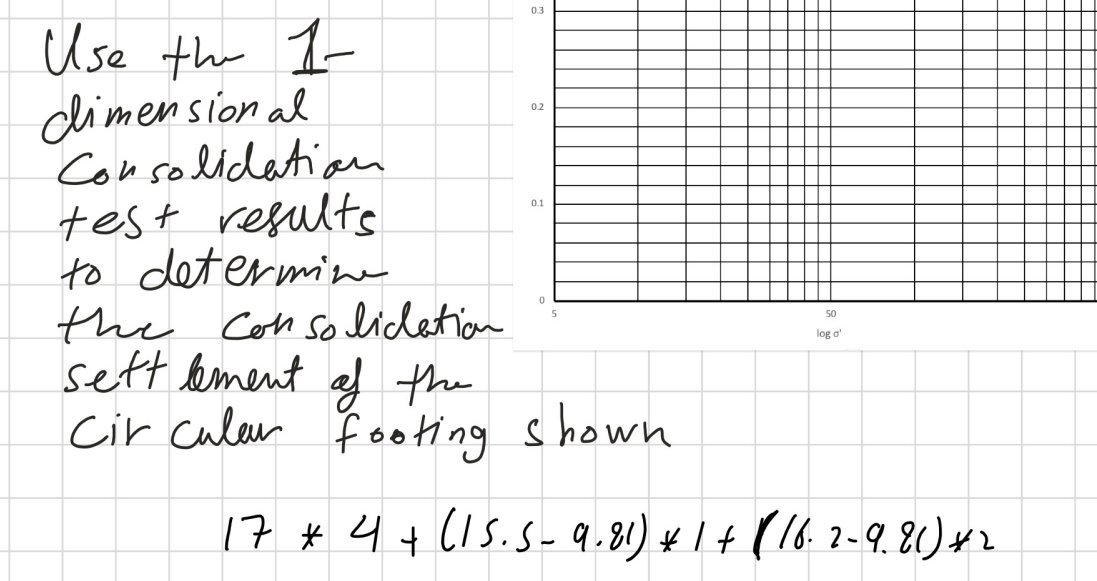 Use the 1-
dimensional
Consolidation
test results
to determine
the consolidation
settlement of the
Circular footing shown
0.3
0.2
0.1
0
5
50
log σ'
17 * 4 + (15.5 - 9.81) * 1 + (16.2 - 9.81) * 2